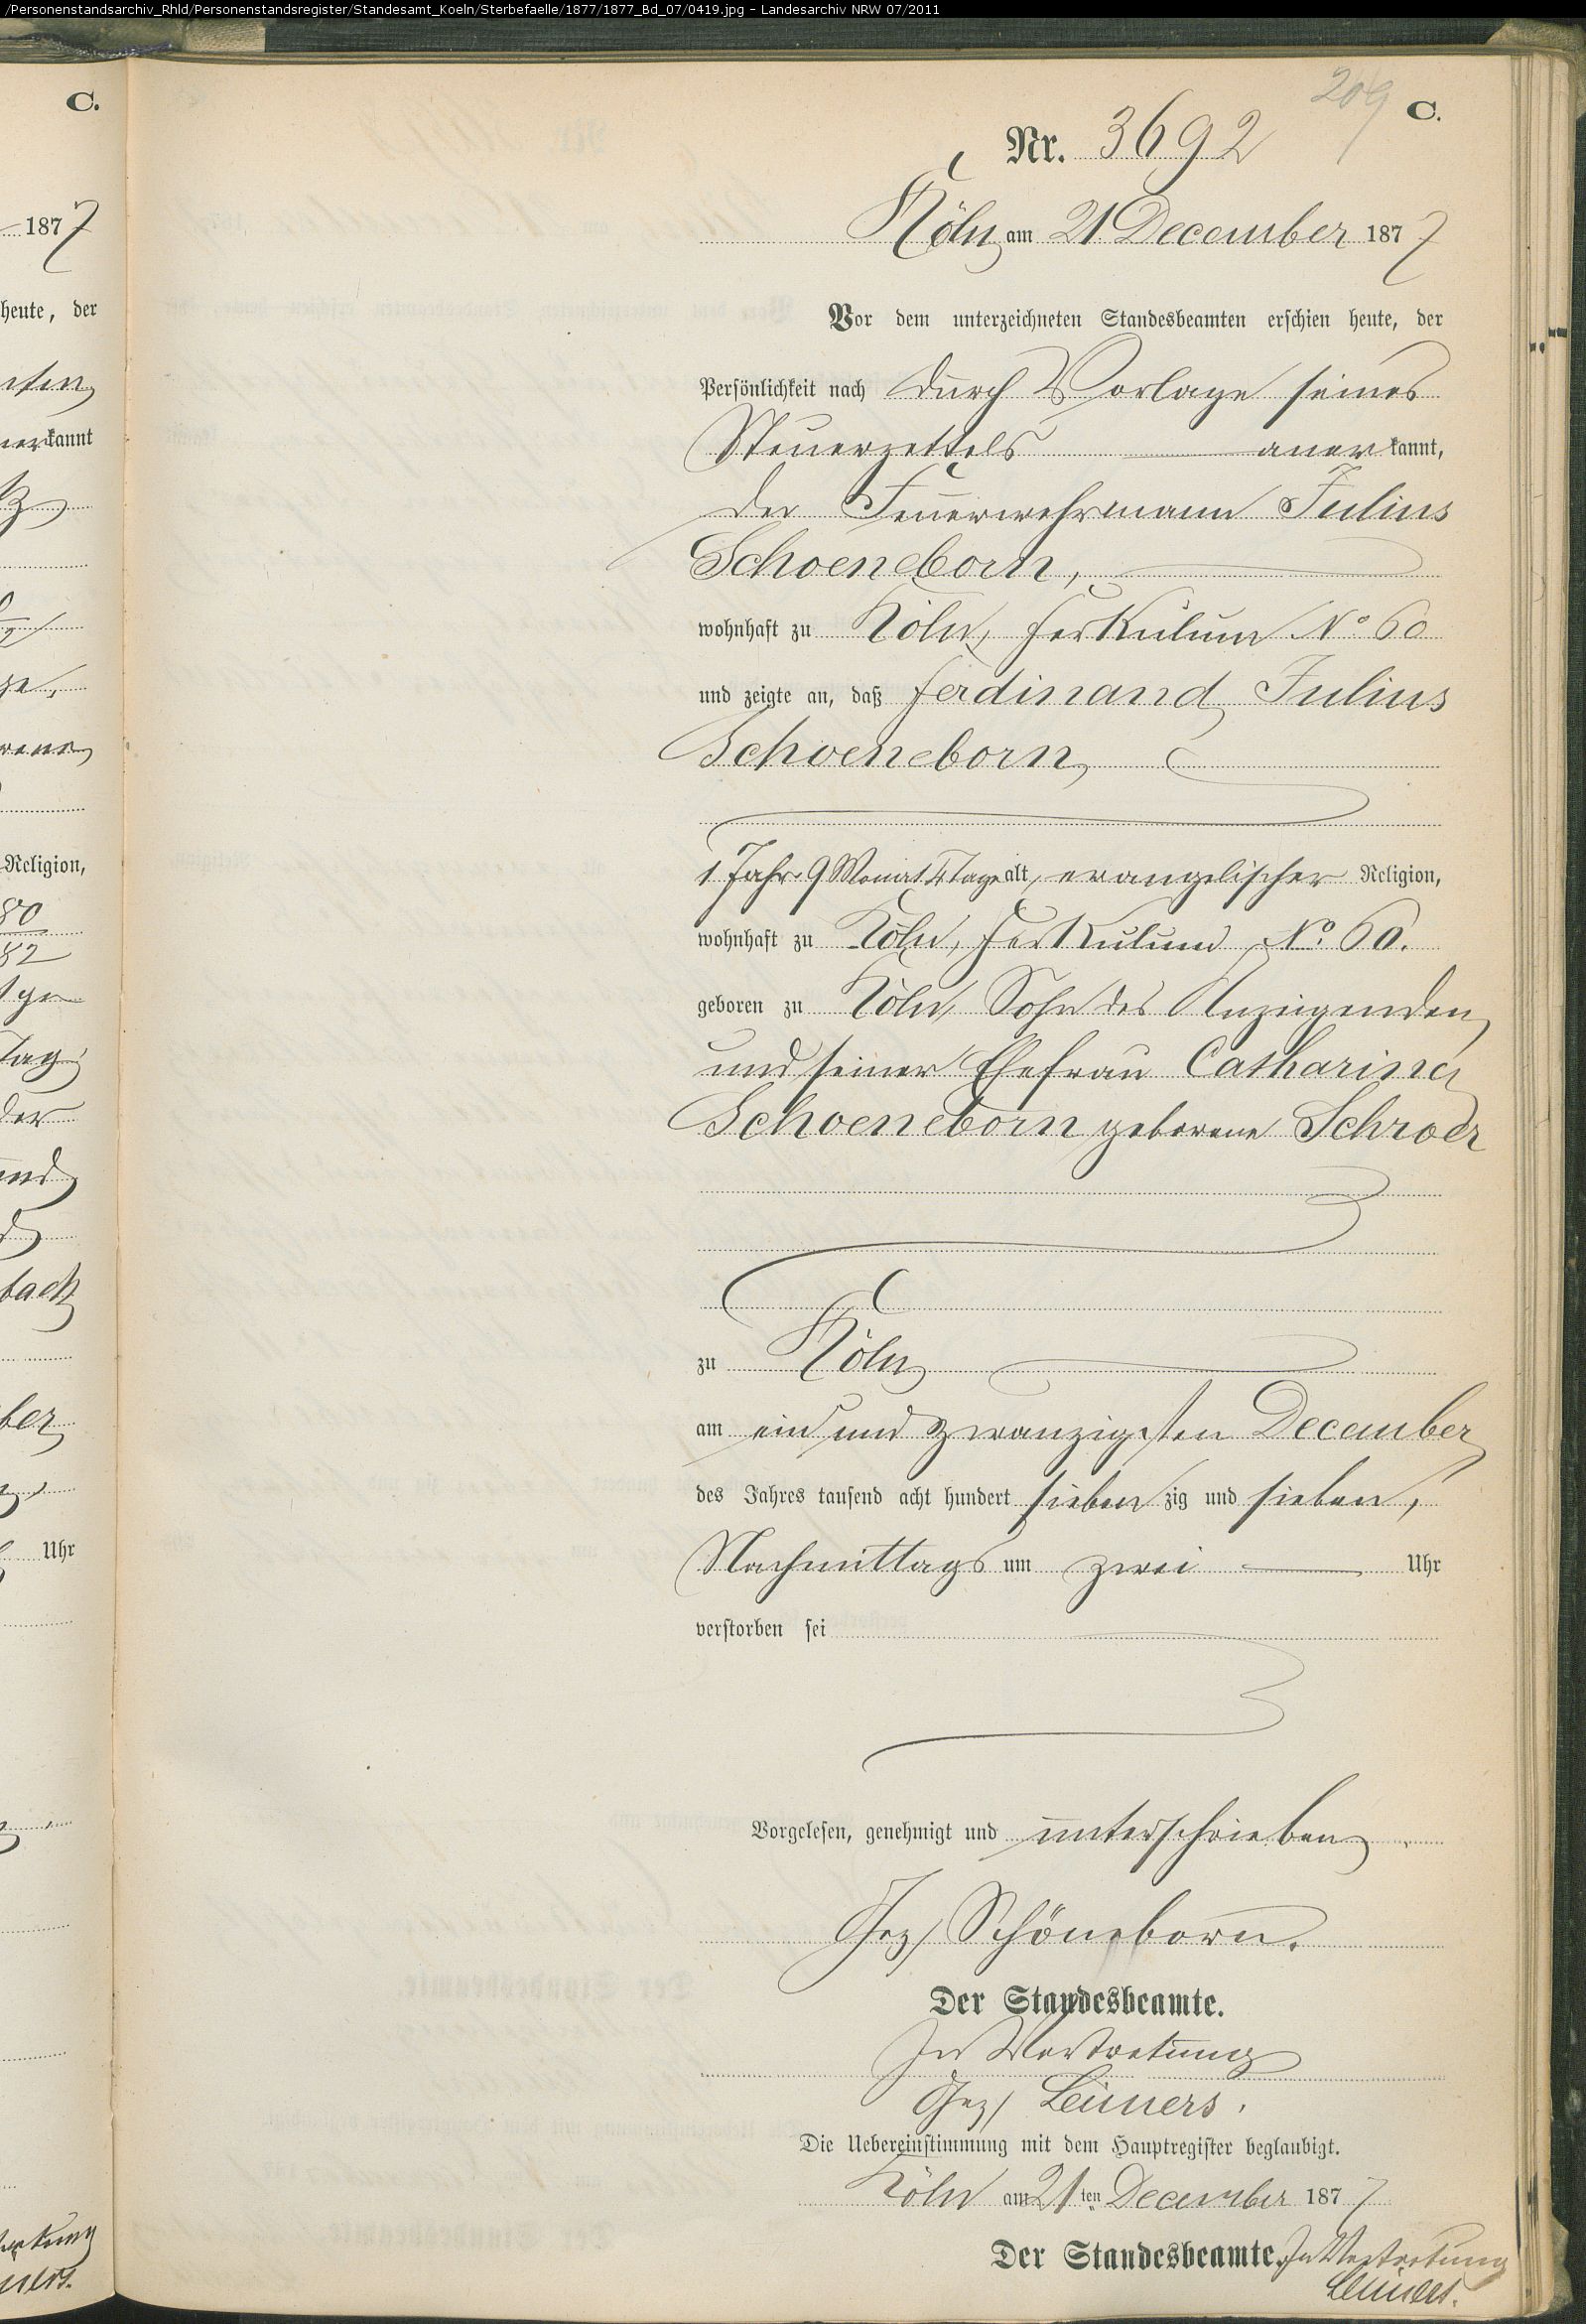 /Personenstandsarchiv_Rhld/Personenstandsregister/Standesamt_Koeln/Sterbefaelle/1877/1877_Bd_07/0419.jpg - Landesarchiv NRW 07/2011
C.
1877
heute, der
kannt
Religion,
80
82
Tag
der
und
back
ber
Uhr
209
C.
Nr. 3692
Köln am 21 December 1877
Vor dem unterzeichneten Standesbeamten erschien heute, der
Persönlichkeit nach durch Vorlage seines
Steuerzettels anerkannt,
der Feuerwehrmann Julius
Schoeneborn,
wohnhaft zu Köln, Perkulum No 60
und zeigte an, daß Ferdinand Julius
Schoeneborn,
1 Jahr 9 Monat Tage alt, evangelischer Religion,
wohnhaft zu Köln, Perkulum No. 60.
geboren zu Köln, Sohn des Anzeigenden
und seiner Ehefrau Catharina
Schoeneborn geborene Schroer
zu Köln
am ein und zwanzigsten December
des Jahres tausend acht hundert siebenzig und sieben,
Nachmittags um zwei Uhr
verstorben sei
Vorgelesen, genehmigt und unterschrieben
Gez/ Schöneborn.
Der Standesbeamte.
In Vertretung
Gez/ Leüners.
Die Uebereinstimmung mit dem Hauptregister beglaubigt.
Köln am 21ten December 1877
Der Standesbeamte. In Vertretung